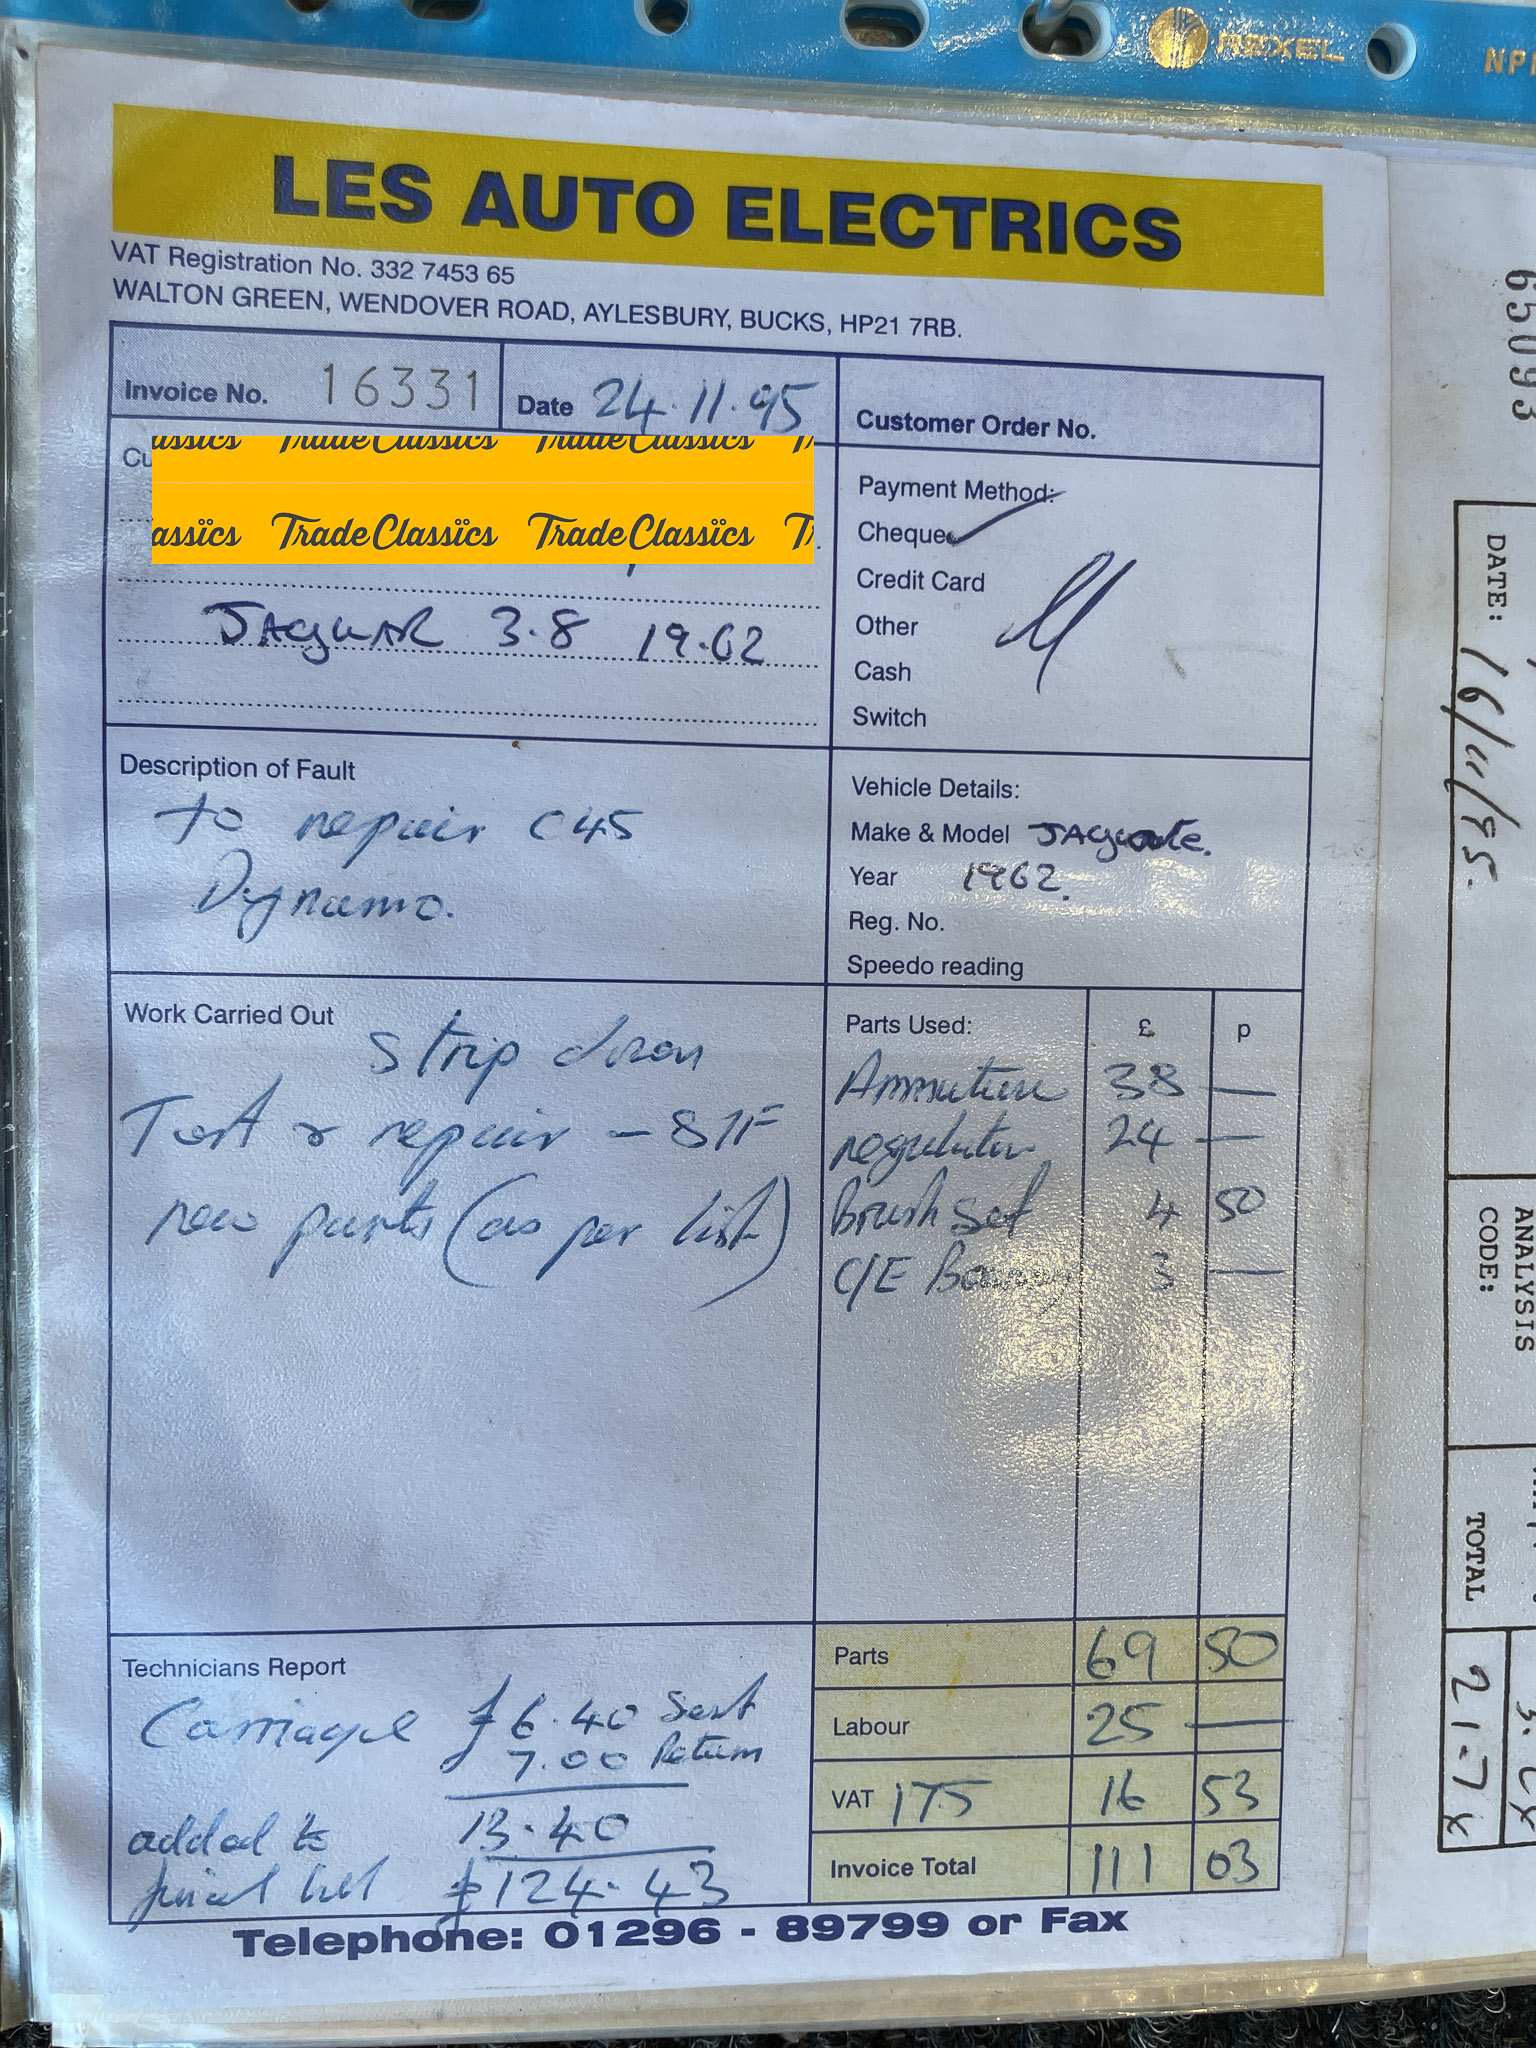 REXEL
LES AUTO ELECTRICS
VAT Registration No. 332 7453 65
WALTON GREEN, WENDOVER ROAD, AYLESBURY, BUCKS, HP21 7RB.
Invoice No. 16331
Date 24.11.95
Customer Order No.
TradeClassics TradeClassics
JAGUAR 3.8 19.62
Payment Method:
Cheque
Credit Card
Other
Cash
Switch
Description of Fault
to repair C45
Dynamo.
Vehicle Details:
Make & Model
Year 1962.
Reg. No.
Speedo reading
Work Carried Out
Strip down
Test & repair - S/F
new parts (as per list)
Parts Used: £ p
Armature 38 —
regulator 24 —
Brush Set 4 50
C/E 3 —
Technicians Report
Carriage £6.40 Sent
7.00 Return
13.40
added to
final bill £124.43
Parts 69 50
Labour 25 —
VAT 17.5 16 53
Invoice Total 111 03
Telephone: 01296 - 89799 or Fax
65093
DATE: 16/11/95.
ANALYSIS
CODE:
TOTAL